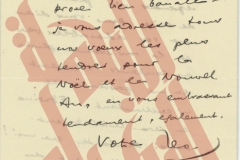 prose ben banale –
je vous adresse tous
nos voeux les plus
tendres pour la
Noël et la Nouvel
An, en vous embrassant
tendrement, également.
Votre